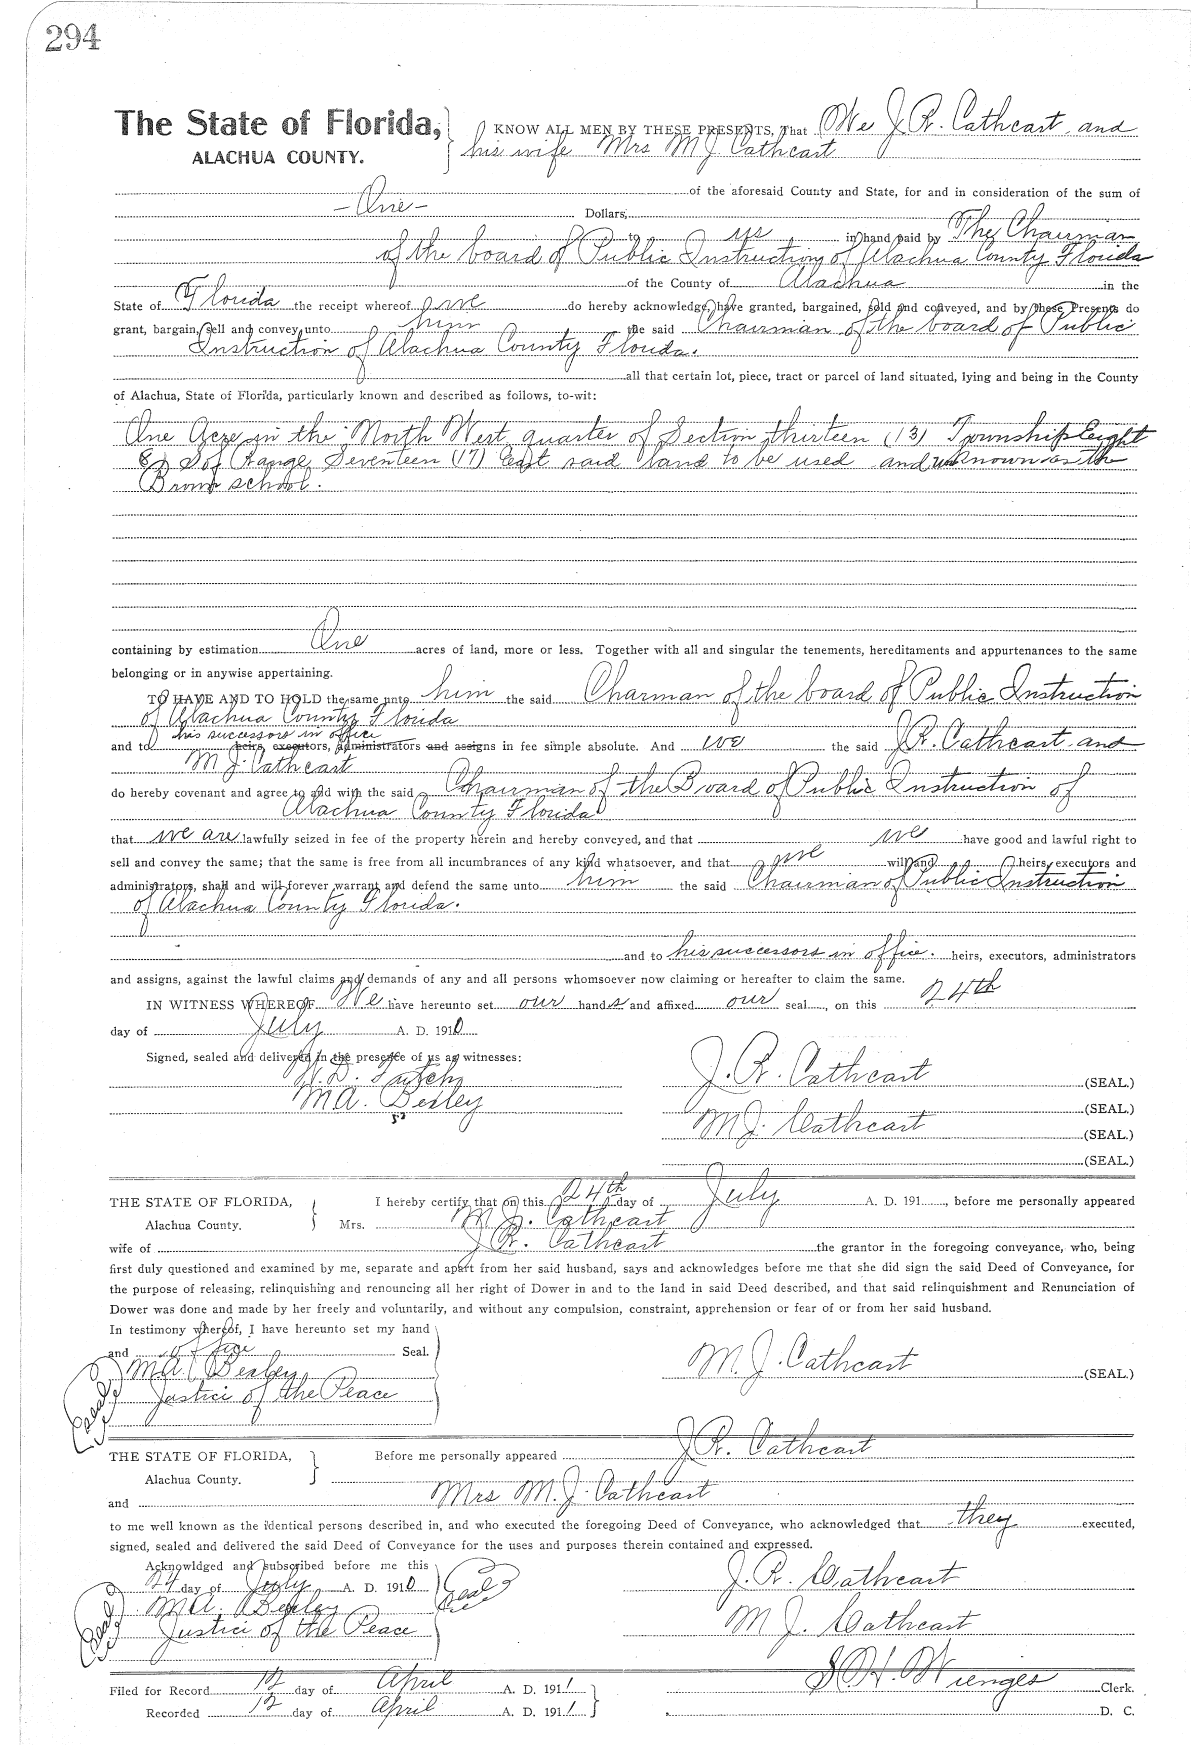 294
The State of Florida, KNOW ALL MEN BY THESE PRESENTS, That We J. R. Cathcart and
ALACHUA COUNTY. his wife Mrs M J Cathcart
of the aforesaid County and State, for and in consideration of the sum of
- One - Dollars,
to us in hand paid by The Chairman
of the board of Public Instruction of Alachua County Florida
of the County of Alachua in the
State of Florida the receipt whereof we do hereby acknowledge, have granted, bargained, sold and conveyed, and by these Presents do
grant, bargain, sell and convey unto him the said Chairman of the board of Public
Instruction of Alachua County Florida.
all that certain lot, piece, tract or parcel of land situated, lying and being in the County
of Alachua, State of Florida, particularly known and described as follows, to-wit:
One Acre in the North West quarter of Section thirteen (13) Township Eight
8) S of Range Seventeen (17) East said land to be used and known as the
school.
containing by estimation One acres of land, more or less. Together with all and singular the tenements, hereditaments and appurtenances to the same
belonging or in anywise appertaining.
TO HAVE AND TO HOLD the same unto him the said Charman of the board of Public Instruction
of Alachua County Florida
his successors in office
and to heirs, executors, administrators and assigns in fee simple absolute. And we the said J. R. Cathcart and
M J. Cathcart
do hereby covenant and agree to and with the said Chairman of the Board of Public Instruction of
Alachua County Florida
that we are lawfully seized in fee of the property herein and hereby conveyed, and that we have good and lawful right to
sell and convey the same; that the same is free from all incumbrances of any kind whatsoever, and that we will and heirs, executors and
administrators, shall and will forever warrant and defend the same unto him the said Chairman of Public Instruction
of Alachua County Florida.
and to his successors in office. heirs, executors, administrators
and assigns, against the lawful claims and demands of any and all persons whomsoever now claiming or hereafter to claim the same.
IN WITNESS WHEREOF We have hereunto set our hands and affixed our seal, on this 24th
day of July A. D. 1910
Signed, sealed and delivered in the presence of us as witnesses:
W. D. Futch J. R. Cathcart (SEAL.)
M A. Bexley M J. Cathcart (SEAL.)
(SEAL.)
(SEAL.)
THE STATE OF FLORIDA, I hereby certify that on this 24th day of July A. D. 191, before me personally appeared
Alachua County. Mrs. M J. Cathcart
wife of J R. Cathcart the grantor in the foregoing conveyance, who, being
first duly questioned and examined by me, separate and apart from her said husband, says and acknowledges before me that she did sign the said Deed of Conveyance, for
the purpose of releasing, relinquishing and renouncing all her right of Dower in and to the land in said Deed described, and that said relinquishment and Renunciation of
Dower was done and made by her freely and voluntarily, and without any compulsion, constraint, apprehension or fear of or from her said husband.
In testimony whereof, I have hereunto set my hand
and office Seal. M. J. Cathcart (SEAL.)
M A Bexley
Justice of the Peace
Seal
THE STATE OF FLORIDA, Before me personally appeared J R. Cathcart
Alachua County.
and Mrs M. J Cathcart
to me well known as the identical persons described in, and who executed the foregoing Deed of Conveyance, who acknowledged that they executed,
signed, sealed and delivered the said Deed of Conveyance for the uses and purposes therein contained and expressed.
Acknowldged and subscribed before me this J. R. Cathcart
24 day of July A. D. 1910 Seal
M A. Bexley M J. Cathcart
Seal Justice of the Peace
Filed for Record 12 day of April A. D. 1911 S. H. Wienges Clerk.
Recorded 12 day of April A. D. 1911 D. C.